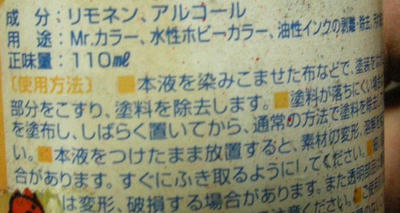 成 分：リモネン、アルコール
用 途：Mr.カラー、水性ホビーカラー、油性インクの剥離・除去、
正味量：110mℓ
〔使用方法〕■本液を染みこませた布などで、塗装を
部分をこすり、塗料を除去します。■塗料が落ちにくい場合
を塗布し、しばらく置いてから、通常の方法で塗料を除去
い。■本液をつけたまま放置すると、素材の変形、溶解
合があります。すぐにふき取るようにしてください。
は変形、破損する場合があります。また透明部品